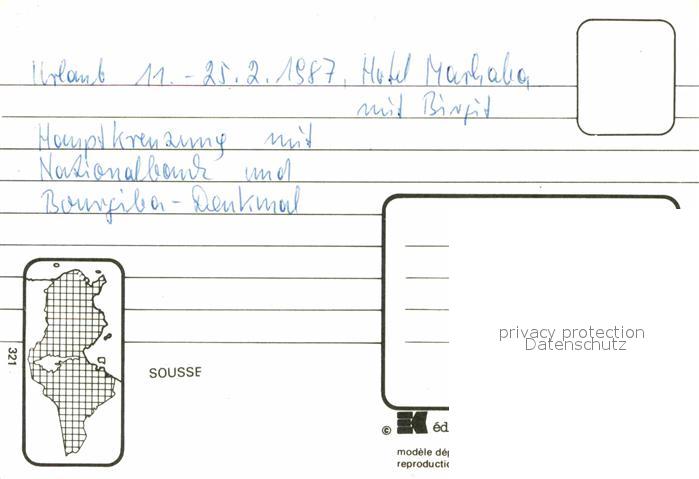 Urlaub 11. - 25.2.1987, Hotel Marhaba
mit Birgit
Hauptkreuzung mit
Nationalbank und
Bourgiba-Denkmal
321
SOUSSE
privacy protection
Datenschutz
© EK éd
modèle dép
reproductio